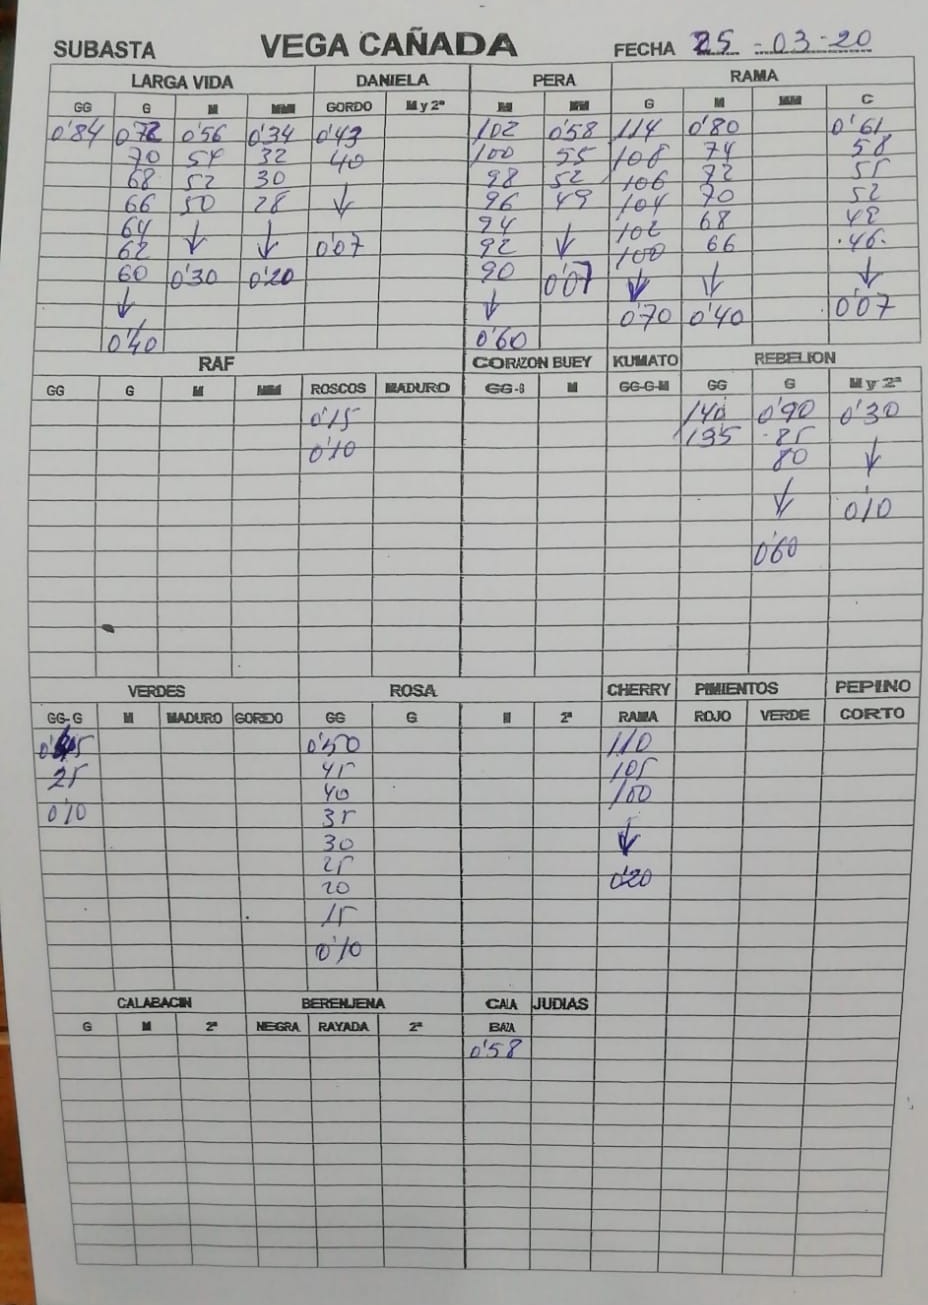 SUBASTA VEGA CAÑADA FECHA 25-03-20
LARGA VIDA DANIELA PERA RAMA
GG G M MM GORDO M y 2ª M MM G M MM C
0'84 0'72 0'56 0'34 0'43 102 0'58 114 0'80 0'61
70 54 32 40 100 55 108 74 58
68 52 30 ↓ 98 52 106 72 55
66 50 28 96 49 104 70 52
64 ↓ ↓ 94 ↓ 102 68 48
62 0'07 92 100 66 46
60 0'30 0'20 90 0'07 ↓ ↓ ↓
↓ ↓ 0'70 0'40 0'07
0'40 0'60
RAF CORAZON BUEY KUMATO REBELION
GG G M MM ROSCOS MADURO GG-G M GG-G-M GG G M y 2ª
0'15 140 0'90 0'30
0'10 135 85 ↓
80
↓ 0'10
0'60
VERDES ROSA CHERRY PIMIENTOS PEPINO
GG-G M MADURO GORDO GG G M 2ª RAMA ROJO VERDE CORTO
0'50 110
25 45 105
40 100
0'10 35 ↓
30
25 0'20
20
15
0'10
CALABACIN BERENJENA CALA JUDIAS
G M 2ª NEGRA RAYADA 2ª BAZA
0'58